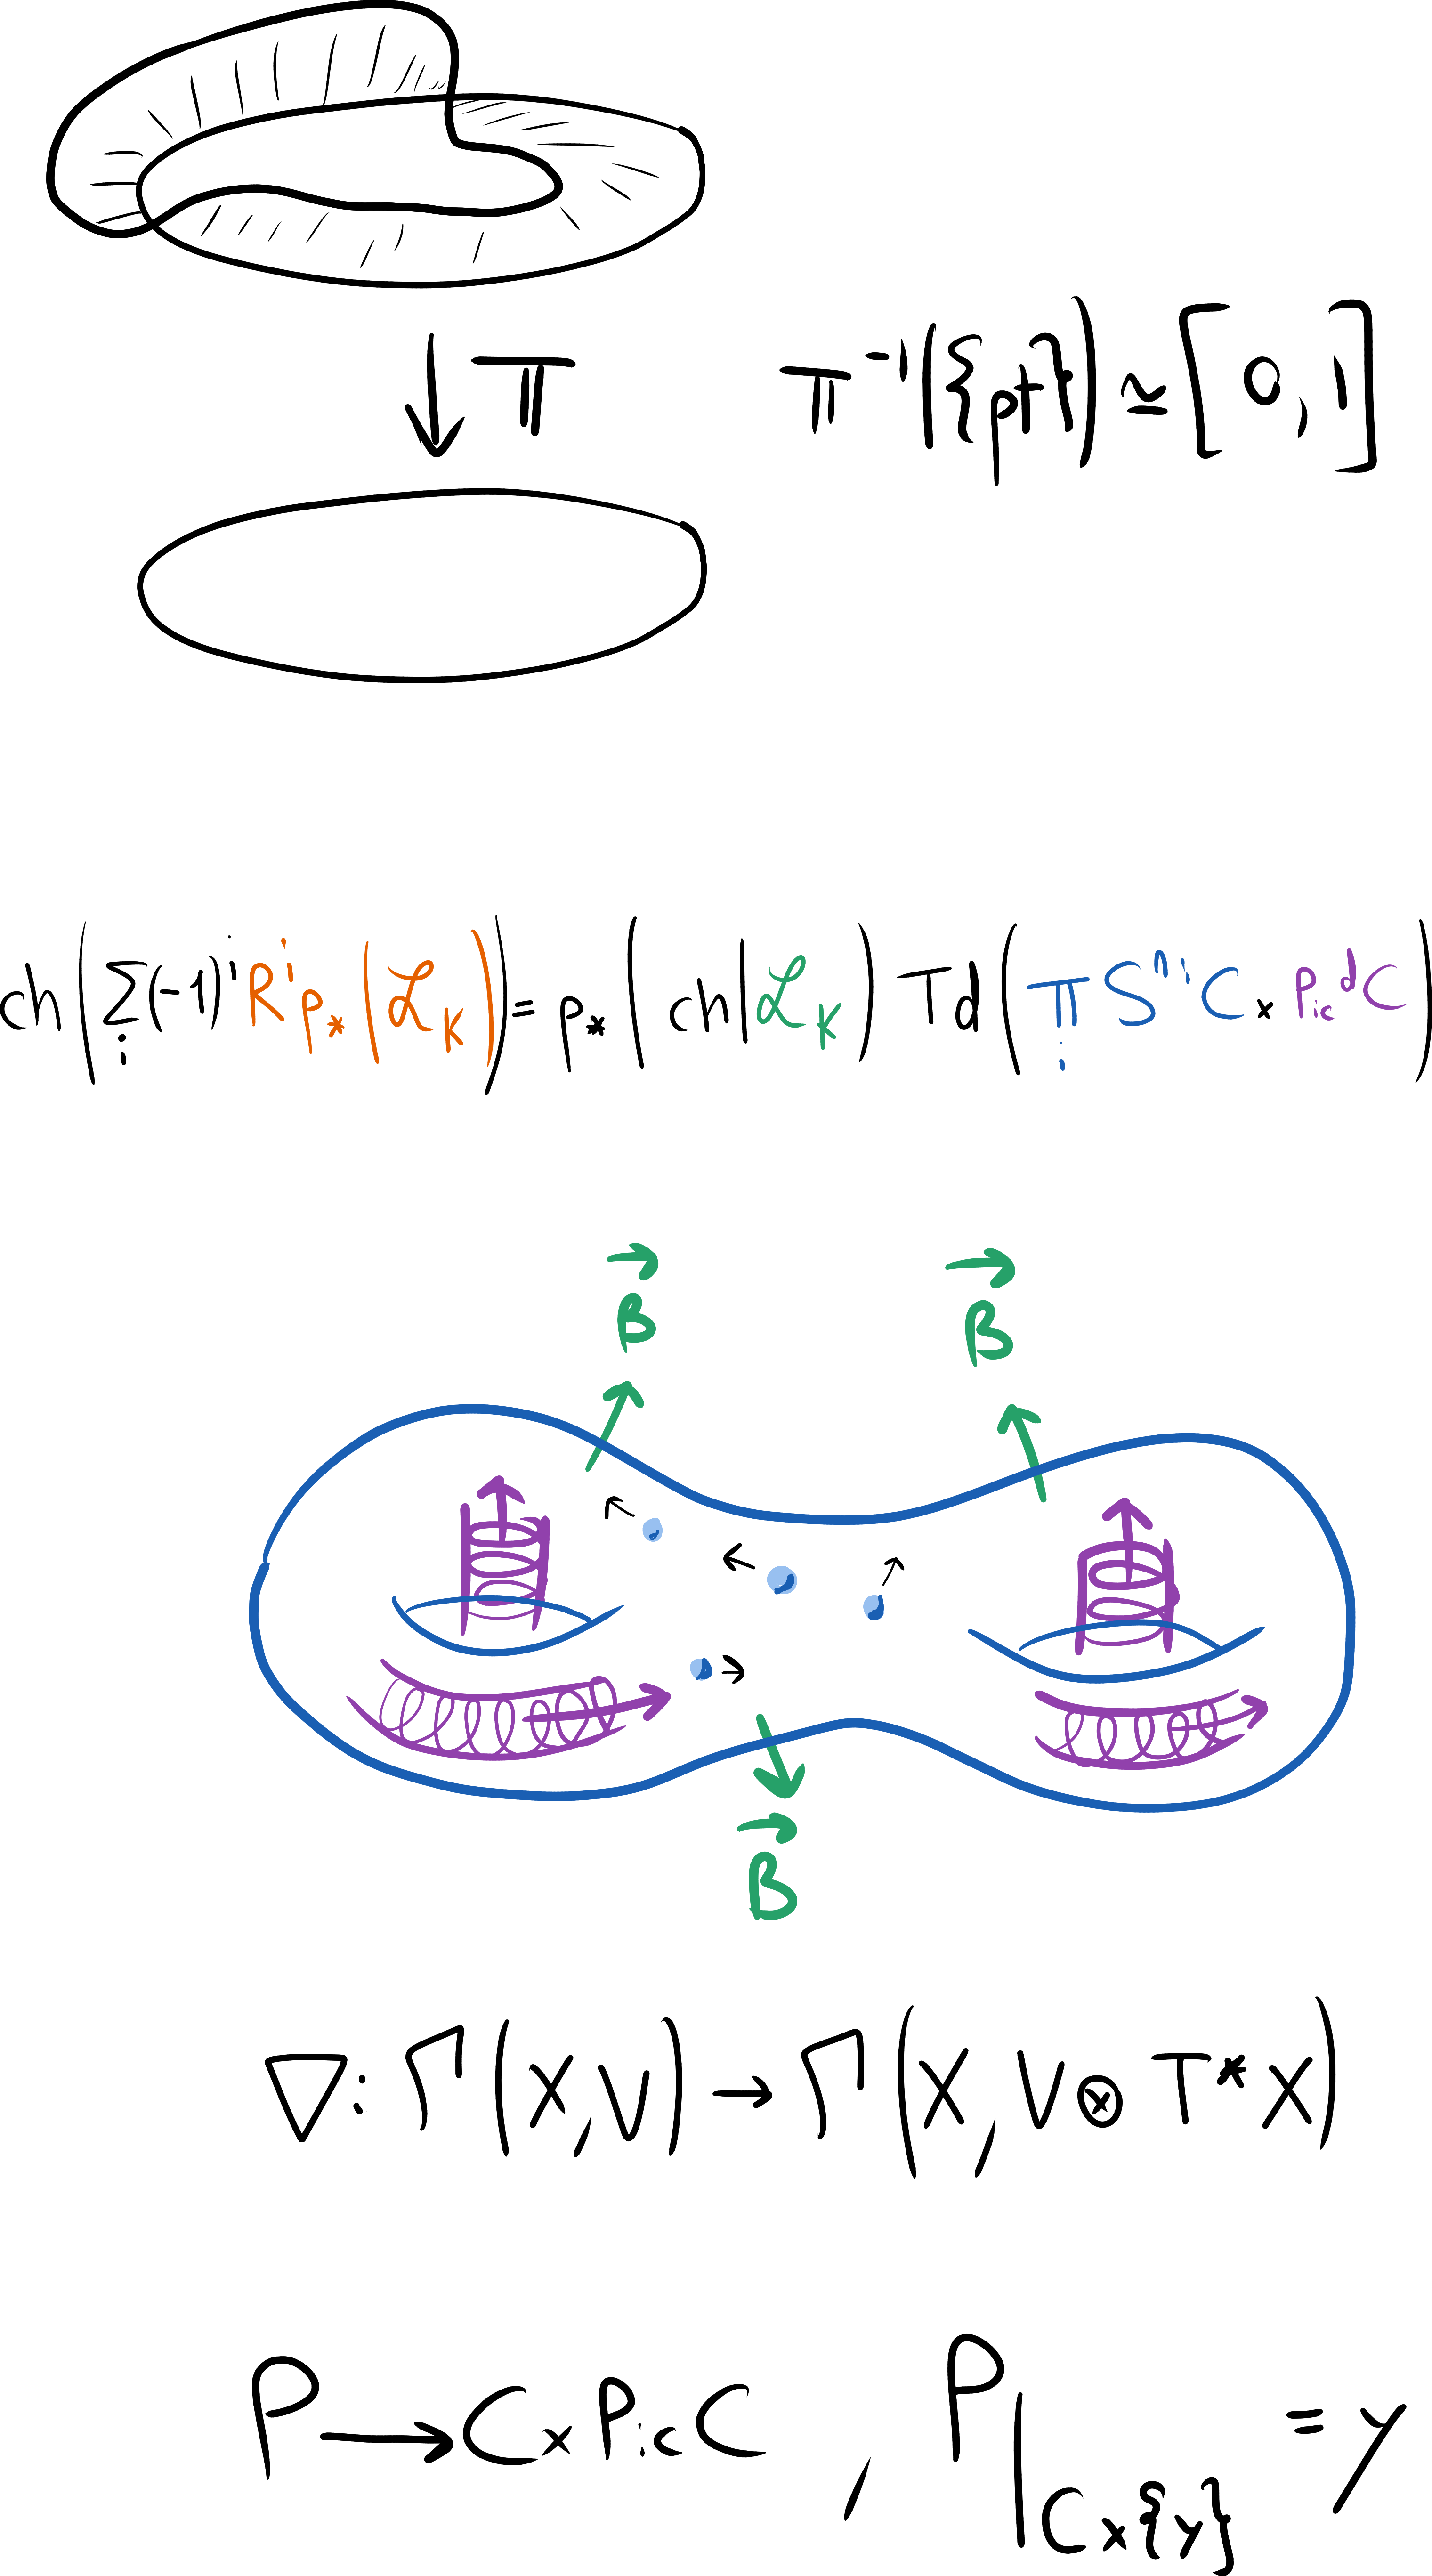 π π⁻¹({pt}) ≃ [0,1]
ch(∑ᵢ(-1)ⁱRⁱp_*(ℒ_K)) = p_*(ch(ℒ_K) Td(∏ᵢ S^{nᵢ}C × Pic^d C)
B⃗ B⃗
B⃗
∇: Γ(X,V) → Γ(X, V⊗T*X)
P → C×Pic C , P|_{C×{y}} = y